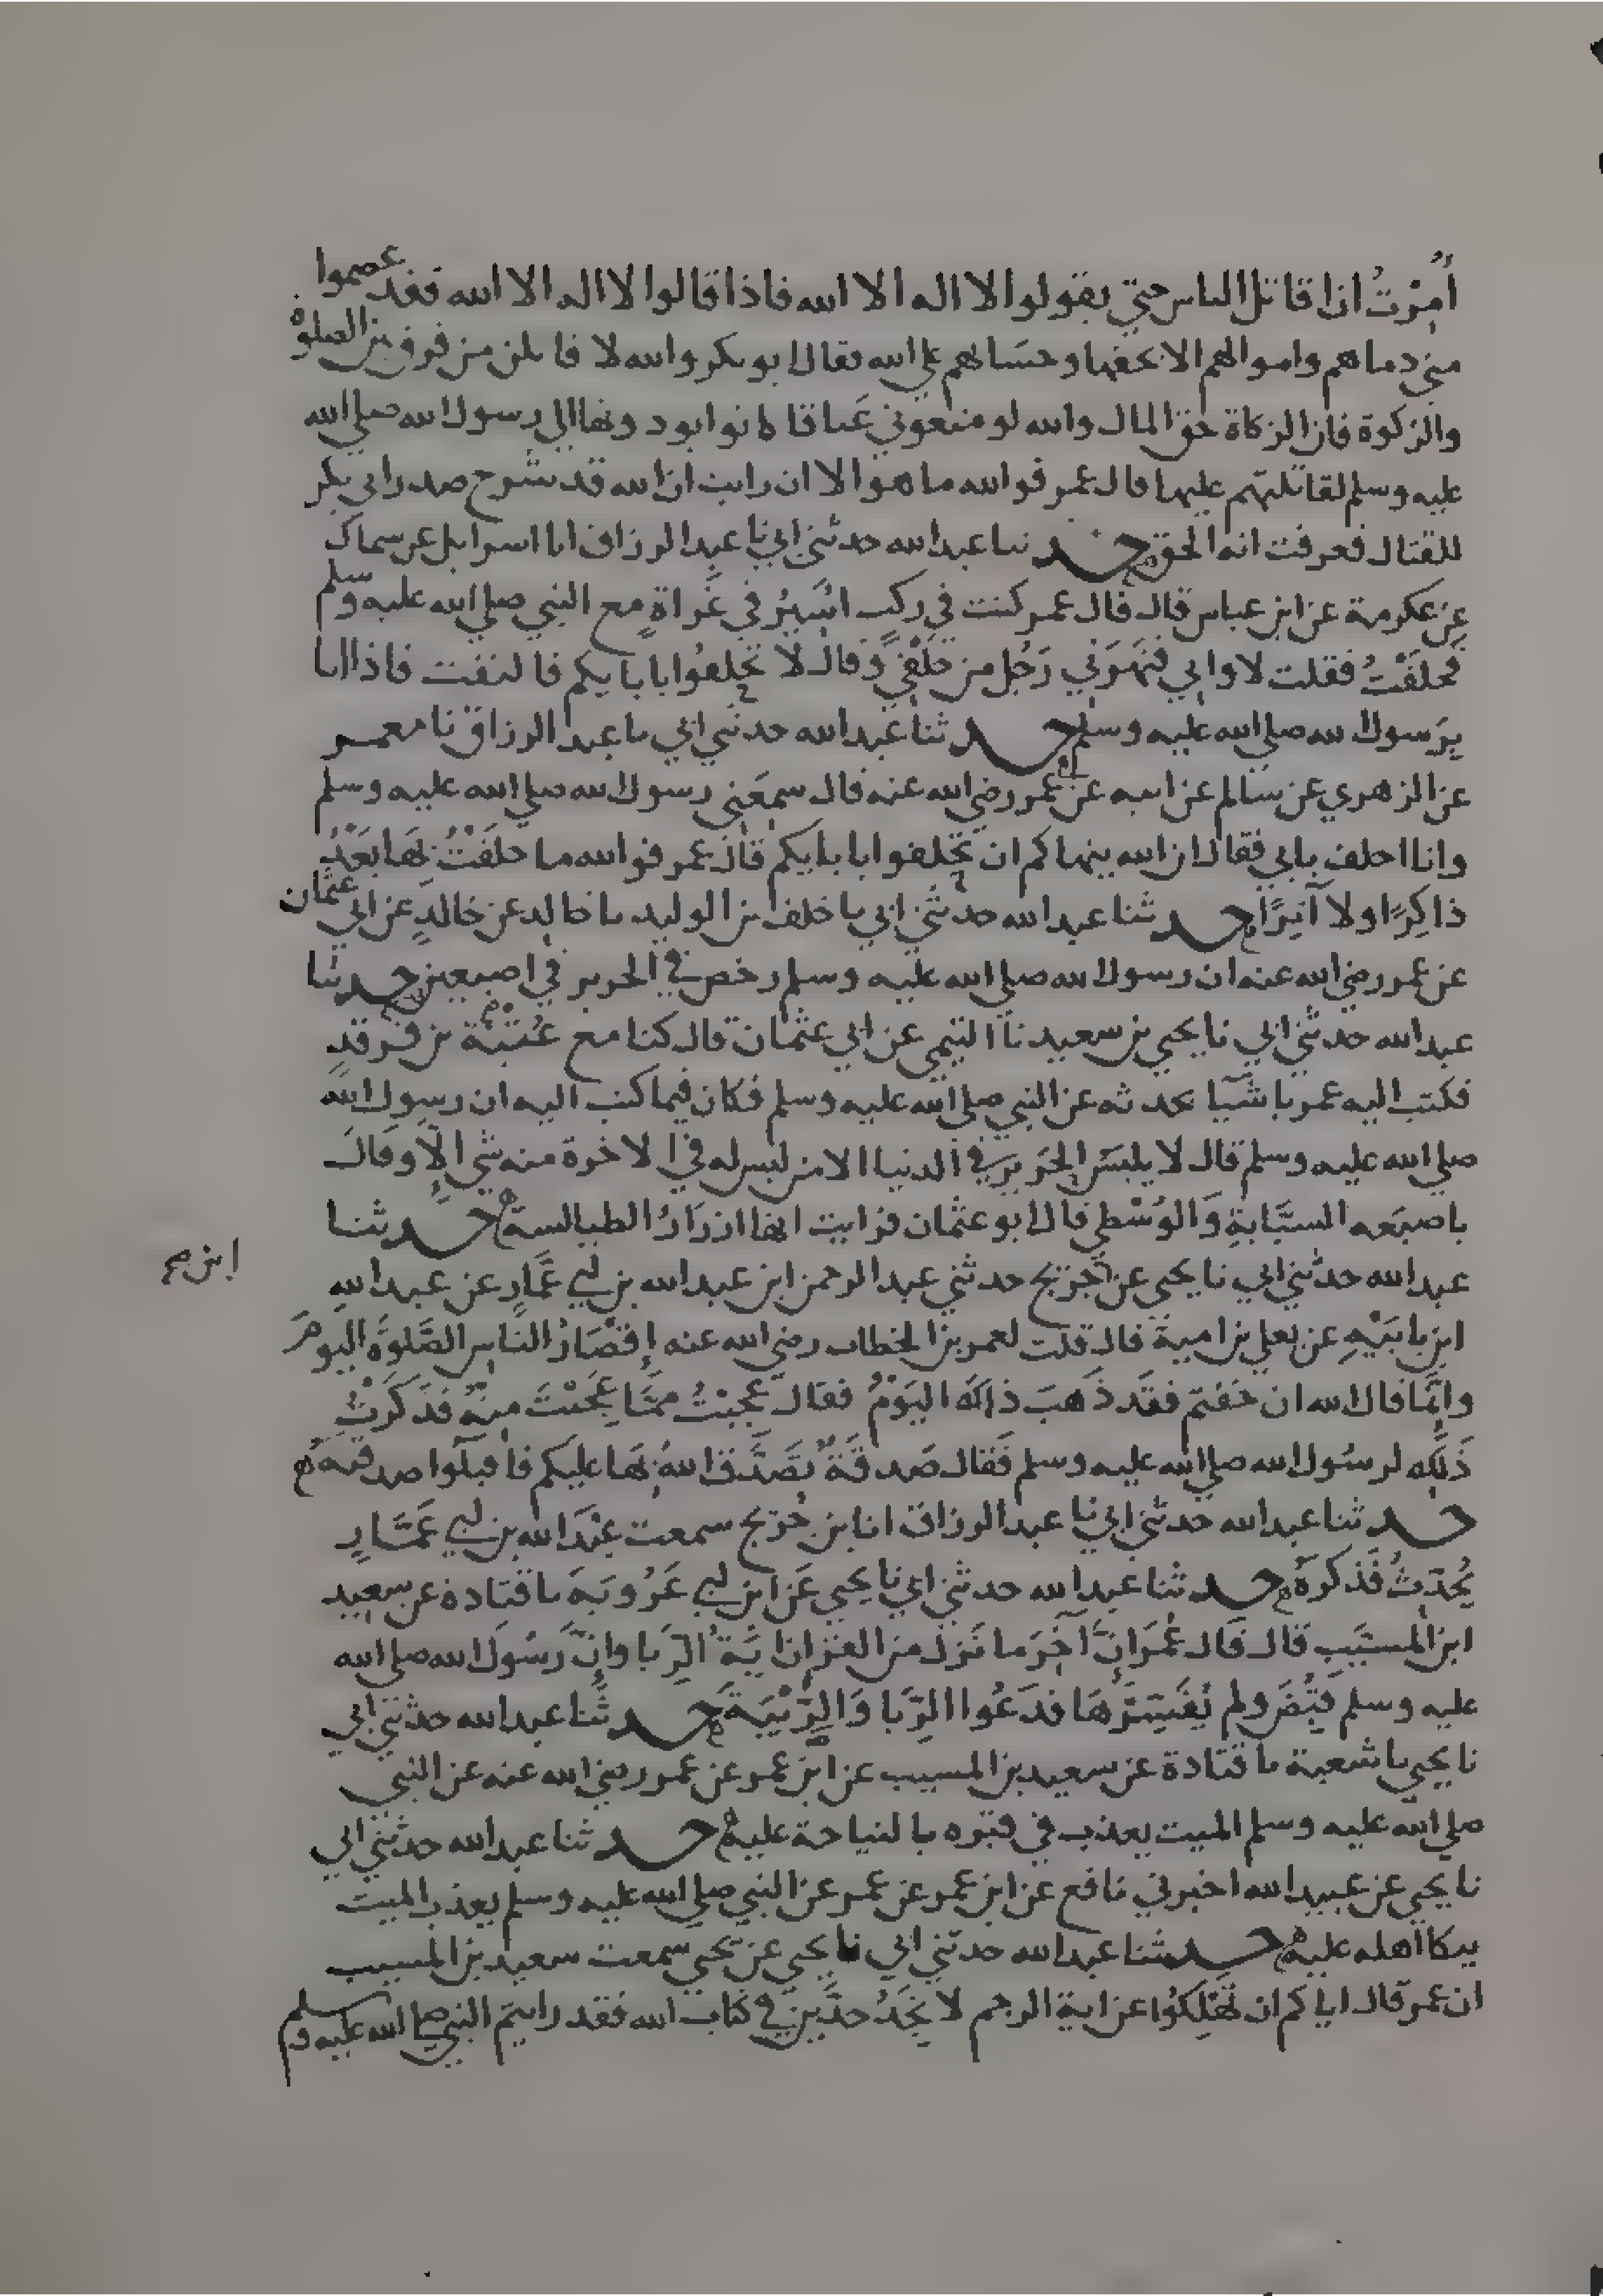 أُمِرْتُ ان اقاتل الناس حتى يقولوا لا اله الا الله فاذا قالوا لا اله الا الله فقد عصموا
مني دماهم واموالهم الا بحقها وحسابهم على الله فقال ابو بكر والله لا قاتلن من فرق بين الصلوة
والزكوة فان الزكاة حق المال والله لو منعوني عناقا كانوا يودونها الى رسول الله صلى الله
عليه وسلم لقاتلتهم عليها قال عمر فوالله ما هو الا ان رايت ان الله قد شرح صدر ابي بكر
للقتال فعرفت انه الحق حدثنا عبد الله حدثني ابي نا عبد الرزاق انا اسرايل عن سماك
عن عكرمة عن ابن عباس قال قال عمر كنت في ركب اسير في غزاة مع النبي صلى الله عليه وسلم
فحلفت فقلت لا وابي فنهرني رجل من خلفي وقال لا تحلفوا بابايكم فالتفت فاذا انا
برسول الله صلى الله عليه وسلم حدثنا عبد الله حدثني ابي نا عبد الرزاق نا معمر
عن الزهري عن سالم عن ابيه عن عمر رضي الله عنه قال سمعني رسول الله صلى الله عليه وسلم
وانا احلف بابي فقال ان الله ينهاكم ان تحلفوا بابايكم قال عمر فوالله ما حلفت بها بعد
ذاكِرًا ولا آثِرًا حدثنا عبد الله حدثني ابي نا خلف بن الوليد نا خالد عن خالدٍ عن ابي عثمان
عن عمر رضي الله عنه ان رسول الله صلى الله عليه وسلم رخص في الحرير في اصبعين حدثنا
عبد الله حدثني ابي نا يحيى بن سعيد نا التيمي عن ابي عثمان قال كنا مع عُتْبَة بن فرقدٍ
فكتب اليه عمر باشيا يحدثه عن النبي صلى الله عليه وسلم فكان فيما كتب اليه ان رسول الله
صلى الله عليه وسلم قال لا يلبس الحرير في الدنيا الا من ليس له في الاخرة منه شي الا وقال
باصبعه السبَّابةِ والوُسْطى قال ابو عثمان فرايت انها ازرار الطيالسة حدثنا
عبد الله حدثني ابي نا يحيى عن جريج حدثني عبد الرحمن ابن عبد الله بن ابي عمَّارٍ عن عبد اللهِ
ابن صح
ابن بابَيْهِ عن يعلى بن امية قال قلت لعمر بن الخطاب رضي الله عنه إقْصَارُ النَّاس الصَّلوةَ اليوم
وانَّما قال الله ان خفتم فقد ذهبَ ذلك اليَوْمُ فقال عَجِبْتُ ممَّا عَجِبْتَ منه فذكرْتُ
ذَلك لرسُول الله صلى الله عليه وسلم فَقال صَدقَةٌ تصَدَّقَ اللهُ بهَا عليكم فاقبلوا صدقته
حدثنا عبد الله حدثني ابي نا عبد الرزاق انا ابن جُريج سمعت عبْدَ الله بن ابي عَمَّارٍ
يُحدّثُ فذكرهُ حدثنا عبد الله حدثني ابي نا يحيى عَن ابن ابي عَرُوبَةَ نا قتادة عن سعيد
ابن المسيّبِ قال قال عُمَر انَّ آخِرَ ما نَزَل من القران ايَةُ الرِّبا وانَّ رَسُولَ الله صلى الله
عليه وسلم قُبِضَ ولم يُفسِّرْهَا فدَعُوا الرِّبا وَالرِّيْبَةَ حدثَنا عبد الله حدثني ابي
نا يحيى نا شعبة نا قتادة عن سعيد بن المسيب عن ابن عمر عن عمر رضي الله عنه عن النبي
صلى الله عليه وسلم الميت يعذب في قبره بالنياحة عليه حدثنا عبد الله حدثني ابي
نا يحيى عن عبيد الله اخبرني نافع عن ابن عمر عن عمر عن النبي صلى الله عليه وسلم يعذب الميت
ببكا اهله عليه حدثنا عبد الله حدثني ابي نا يحيى عن يحيى سمعت سعيد بن المسيب
ان عمر قال اياكم ان تَهْلِكُوا عن اية الرجم لا نَجَدُ حدَّين في كتاب الله فقد رايتم النبي صلى الله عليه وسلم